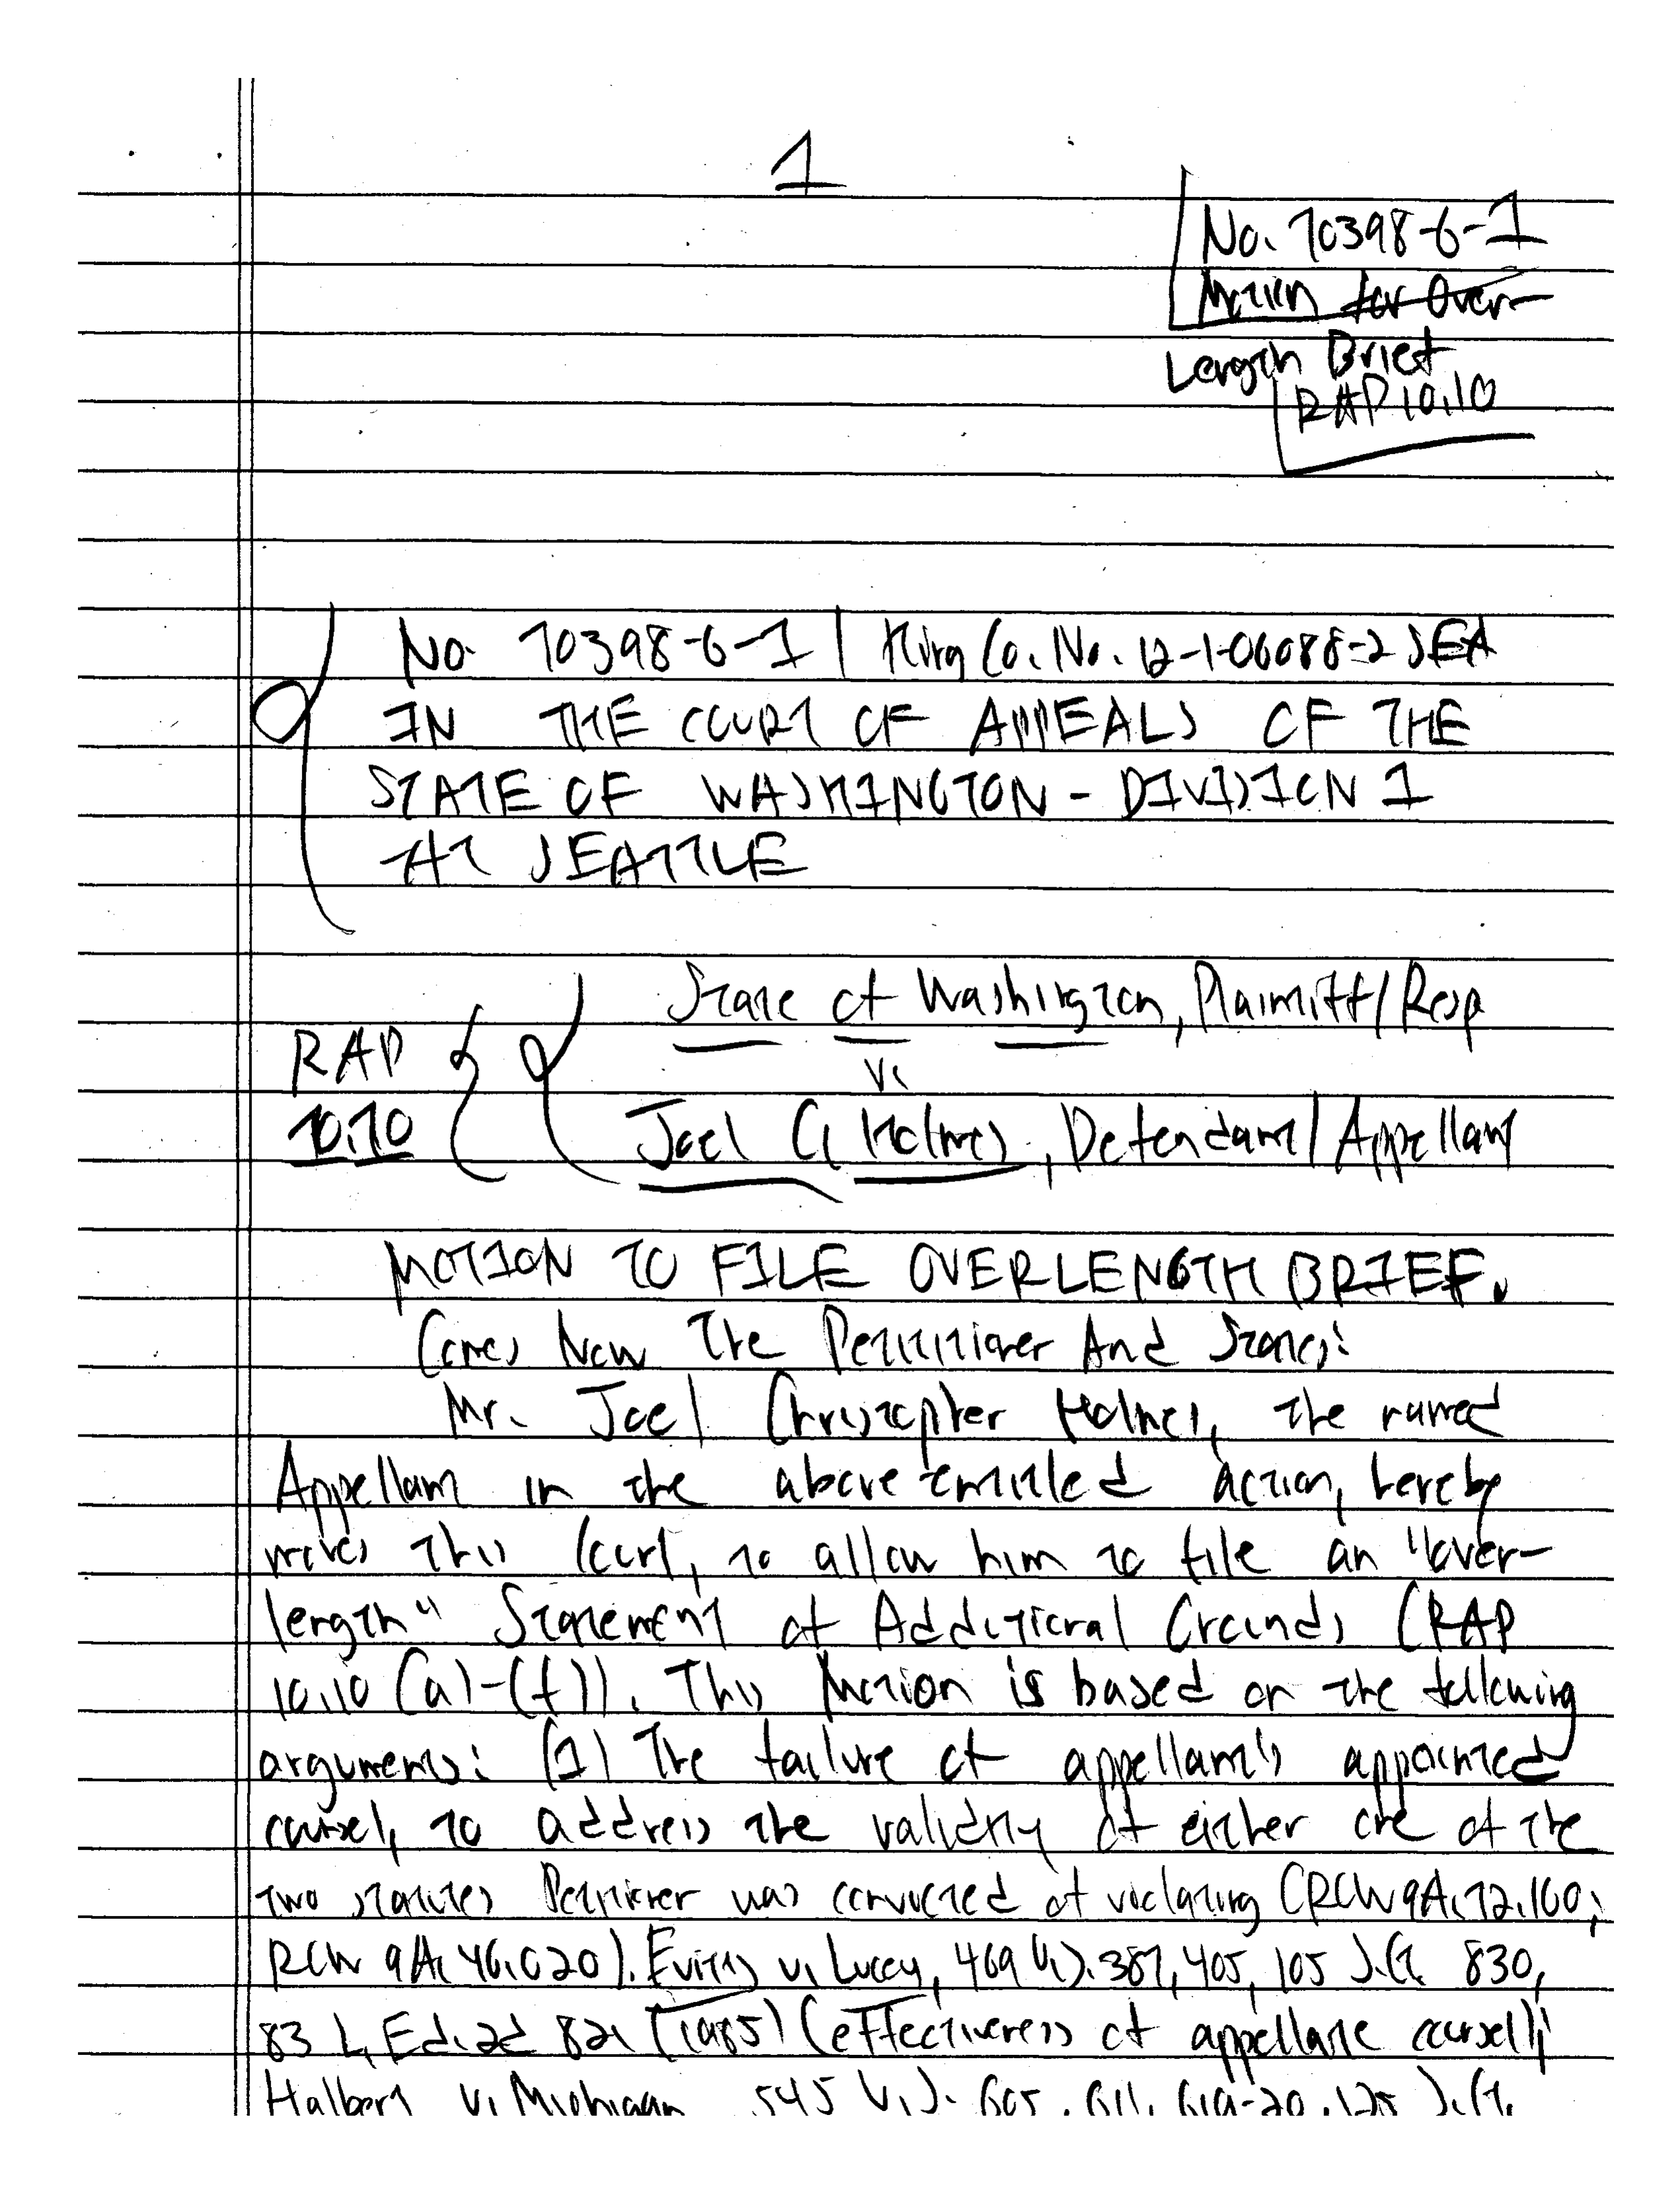 1
No. 70398-6-1
Motion for Over-
Length Brief
RAP 10.10
No. 70398-6-1 | King Co. No. 12-1-06088-2 SEA
IN THE COURT OF APPEALS OF THE
STATE OF WASHINGTON - DIVISION 1
AT SEATTLE
State of Washington, Plaintiff/Resp
v.
RAP
10.10
Joel C. Holmes, Defendant/Appellant
MOTION TO FILE OVERLENGTH BRIEF.
Comes Now The Petitioner And States:
Mr. Joel Christopher Holmes, the named
Appellant in the above entitled action, hereby
moves this Court, to allow him to file an "over-
length" Statement of Additional Grounds (RAP
10.10 (a)-(f)). This Motion is based on the following
arguments: (1) The failure of appellant's appointed
counsel, to address the validity of either one of the
two statutes Petitioner was convicted of violating (RCW 9A.72.160;
RCW 9A.46.020). Evitts v. Lucey, 469 U.S. 387, 405, 105 S.Ct. 830,
83 L.Ed.2d 821 (1985) (effectiveness of appellate counsel);
Halbert v. Michigan 545 U.S. 605, 611, 619-20, 125 S.Ct.